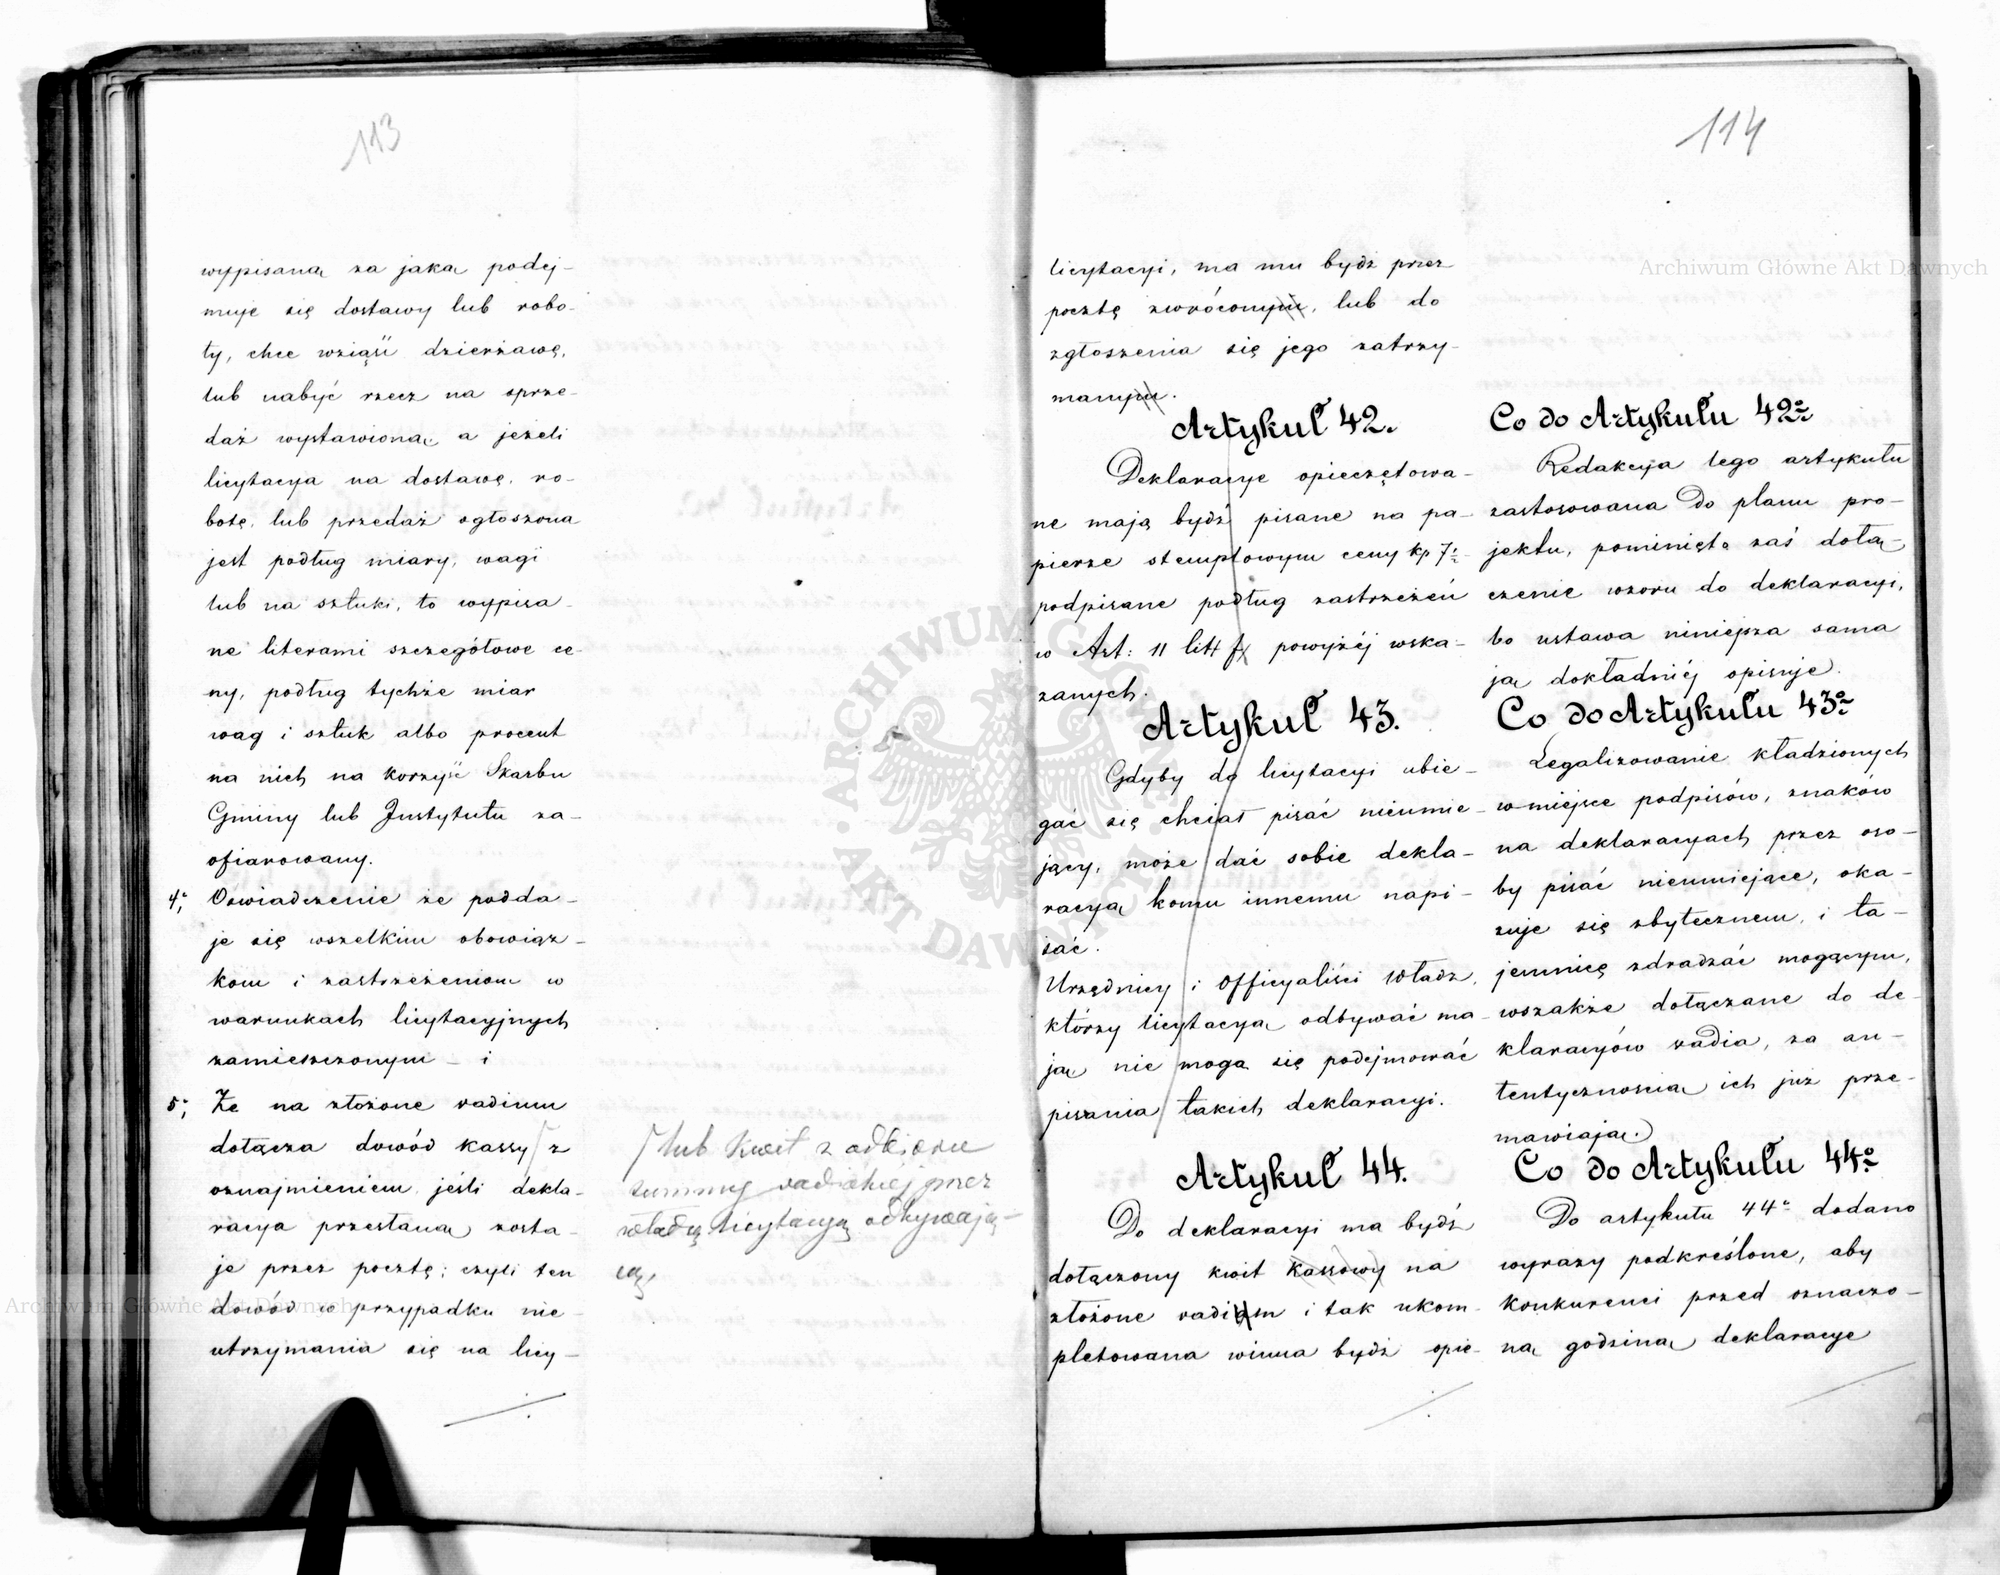 113
wypisaną za jaką podej-
muje się dostawy lub robo-
ty, chce wziąść dzierżawę,
lub nabyć rzecz na sprze-
daż wystawioną, a jeżeli
licytacya na dostawę, ro-
botę, lub przedaż ogłoszona
jest podług miary, wagi
lub na sztuki, to wypisa-
ne literami szczegółowe ce-
ny, podług tychże miar
wag i sztuk albo procent
na nich na korzyść Skarbu
Gminy lub Instytutu za-
ofiarowany.
4; Oświadczenie że podda-
je się wszelkim obowiąz-
kom i zastrzeżeniom w
warunkach licytacyjnych
zamieszczonym - i
5; Że na złożone vadium
dołącza dowód kassy / z
oznajmieniem jeśli dekla-
racya przesłaną zosta-
je przez pocztę; czyli ten
dowód w przypadku nie-
utrzymania się na licy-
/ lub kwit z odbioru
summy vadialnej przez
władzę licytacyą odbywają-
cą,
114
licytacyi, ma mu bydź przez
pocztę zwróconym, lub do
zgłoszenia się jego zatrzy-
manym.
Artykuł 42.
Deklaracye opieczętowa-
ne mają bydź pisane na pa-
pierze stemplowym ceny kp 7½
podpisane podług zastrzeżeń
w Art: 11 litt f powyżéj wska-
zanych.
Artykuł 43.
Gdyby do licytacyi ubie-
gać się chciał pisać nieumie-
jący, może dać sobie dekla-
racyą komu innemu napi-
sać.
Urzędnicy i Officyaliści Władz,
którzy licytacyą odbywać ma-
ją nie mogą się podejmować
pisania takich deklaracyi.
Artykuł 44.
Do deklaracyi ma bydź
dołączony kwit kassowy na
złożone vadium i tak ukom-
pletowana winna bydź opie-
Co do Artykułu 42º
Redakcya tego artykułu
zastosowana do planu pro-
jektu, pominięto zaś dołą-
czenie wzoru do deklaracyi,
bo ustawa niniejsza sama
ją dokładniéj opisuje.
Co do Artykułu 43º
Legalizowanie kładzionych
w miejsce podpisów, znaków
na deklaracyach przez oso-
by pisać nieumiejące, oka-
zuje się zbytecznem, i ta-
jemnicę zdradzać mogącym,
wszakże dołączane do de-
klaracyów vadia, za au-
tentycznością ich już prze-
mawiają.
Co do Artykułu 44º
Do artykułu 44º dodano
wyrazy podkreślone, aby
konkurenci przed oznaczo-
ną godziną deklaracye
Archiwum Główne Akt Dawnych
Archiwum Główne Akt Dawnych
ARCHIWUM GŁÓWNE · AKT DAWNYCH ·